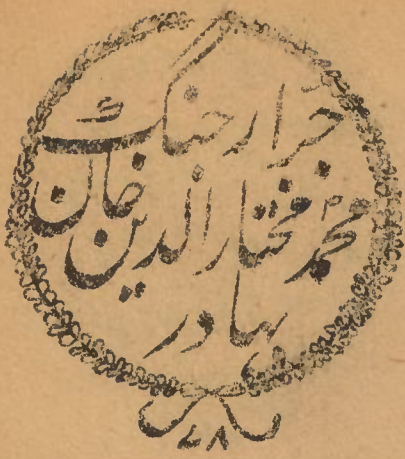 جرّار جنگ
محمد مختار الدین خان
بہادر